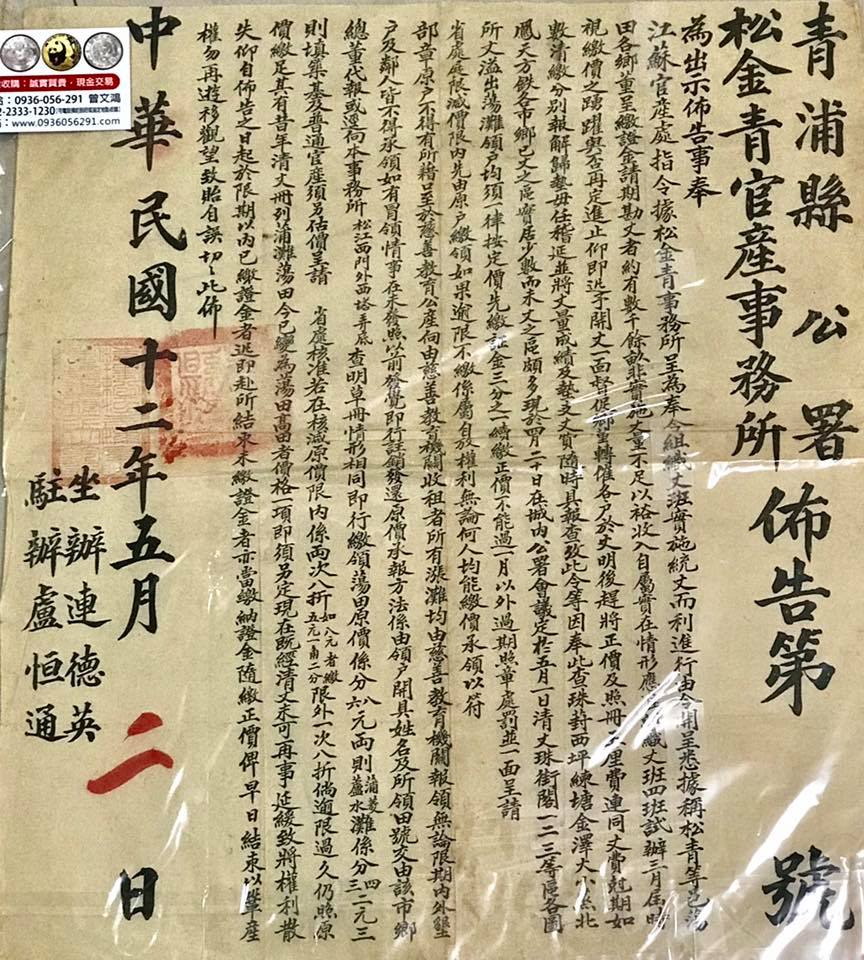 青浦縣公署佈告第 號
松金青官產事務所
為出示佈告事奉
江蘇官產處指令據松金青事務所呈為奉令組織丈班實施統丈而利進行由令開呈悉據稱松青等邑蕩
田各鄉董呈繳證金請期勘丈者約有數千餘畝非實施丈量不足以裕收入自屬實在情形應 組織丈班四班試辦三月屆時
視繳價之踴躍與否再定進止仰即迅予開丈一面督促鄉董轉催各戶於丈明後趕將正價及照冊 費連同丈費尅期如
數清繳分別報解歸墊毋任稽延並將丈量成績及墊支丈費隨時具報查攷此令等因奉此查珠葑西坪練塘金澤大小 北
鳳天方鉄各市鄉已丈之區實居少數而未丈之區頗多現於四月二十日在城內公署會議定於五月一日清丈珠街閣一二三等區各圖
所丈溢出蕩灘領戶均須一律按定價先繳証金三分之一續繳正價不能過一月以外過期照章處罰並一面呈請
省處展限減價限內先由原戶繳領如果逾限不繳係屬自放權利無論何人均能繳價承領以符
部章原戶不得有所藉口至於慈善教育公產向由慈善教育機關收租者所有漲灘均由慈善教育機關報領無論限期內外墾
戶及鄰人皆不得承領如有冒領情事在未發照以前發覺即行註銷發還原價承報方法係由領戶開具姓名及所領田號交由該市鄉
總董代報或逕向本事務所 松江西門外西塔弄底 查明草冊情形相同即行繳領蕩田原價係分 八六 元兩則 蒲菱蘆水 灘係分 四二三 元三
則填築基及普通官產須另估價呈請 省處核准若在核減原價限內係兩次八折 如八元者繳五元一角二分 限外一次八折倘逾限過久仍照原
價繳足其有昔年清丈冊列蒲灘蕩田今已變為蕩田高田者價格一項即須另定現在既經清丈未可再事延緩致將權利散
失仰自佈告之日起於限期以內已繳證金者迅即赴所結束未繳證金者亦當繳納證金隨繳正價俾早日結束以鞏產
權勿再遊移觀望致貽自誤切切此佈
中華民國十二年五月二日
坐辦連德英
駐辦盧恒通
收購：誠實買賣·現金交易
：0936-056-291 曾文鴻
2-2333-1230
：www.0936056291.com